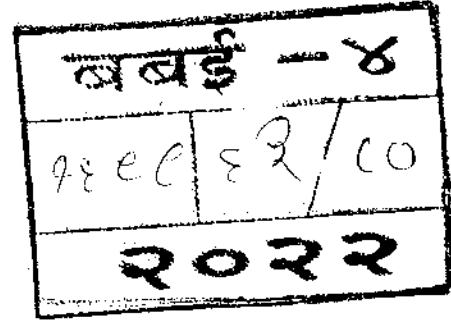 बबई - ४
१६९८ ६२/८०
२०२२